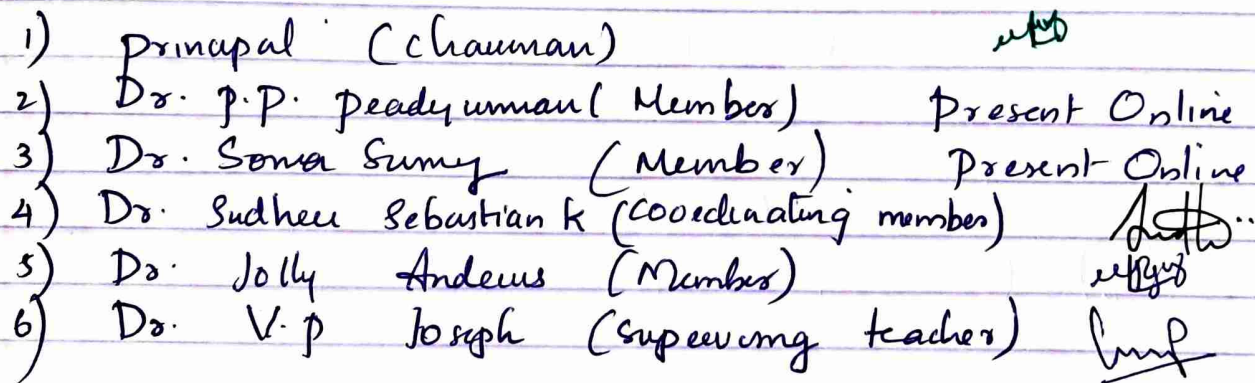 1) Principal (Chairman)
2) Dr. P.P. Peadyumnan (Member) Present Online
3) Dr. Sonia Sumy (Member) Present Online
4) Dr. Sudheer Sebastian K (Cooedinating member)
5) Dr. Jolly Andrews (Member)
6) Dr. V.P Joseph (Supervising teacher)